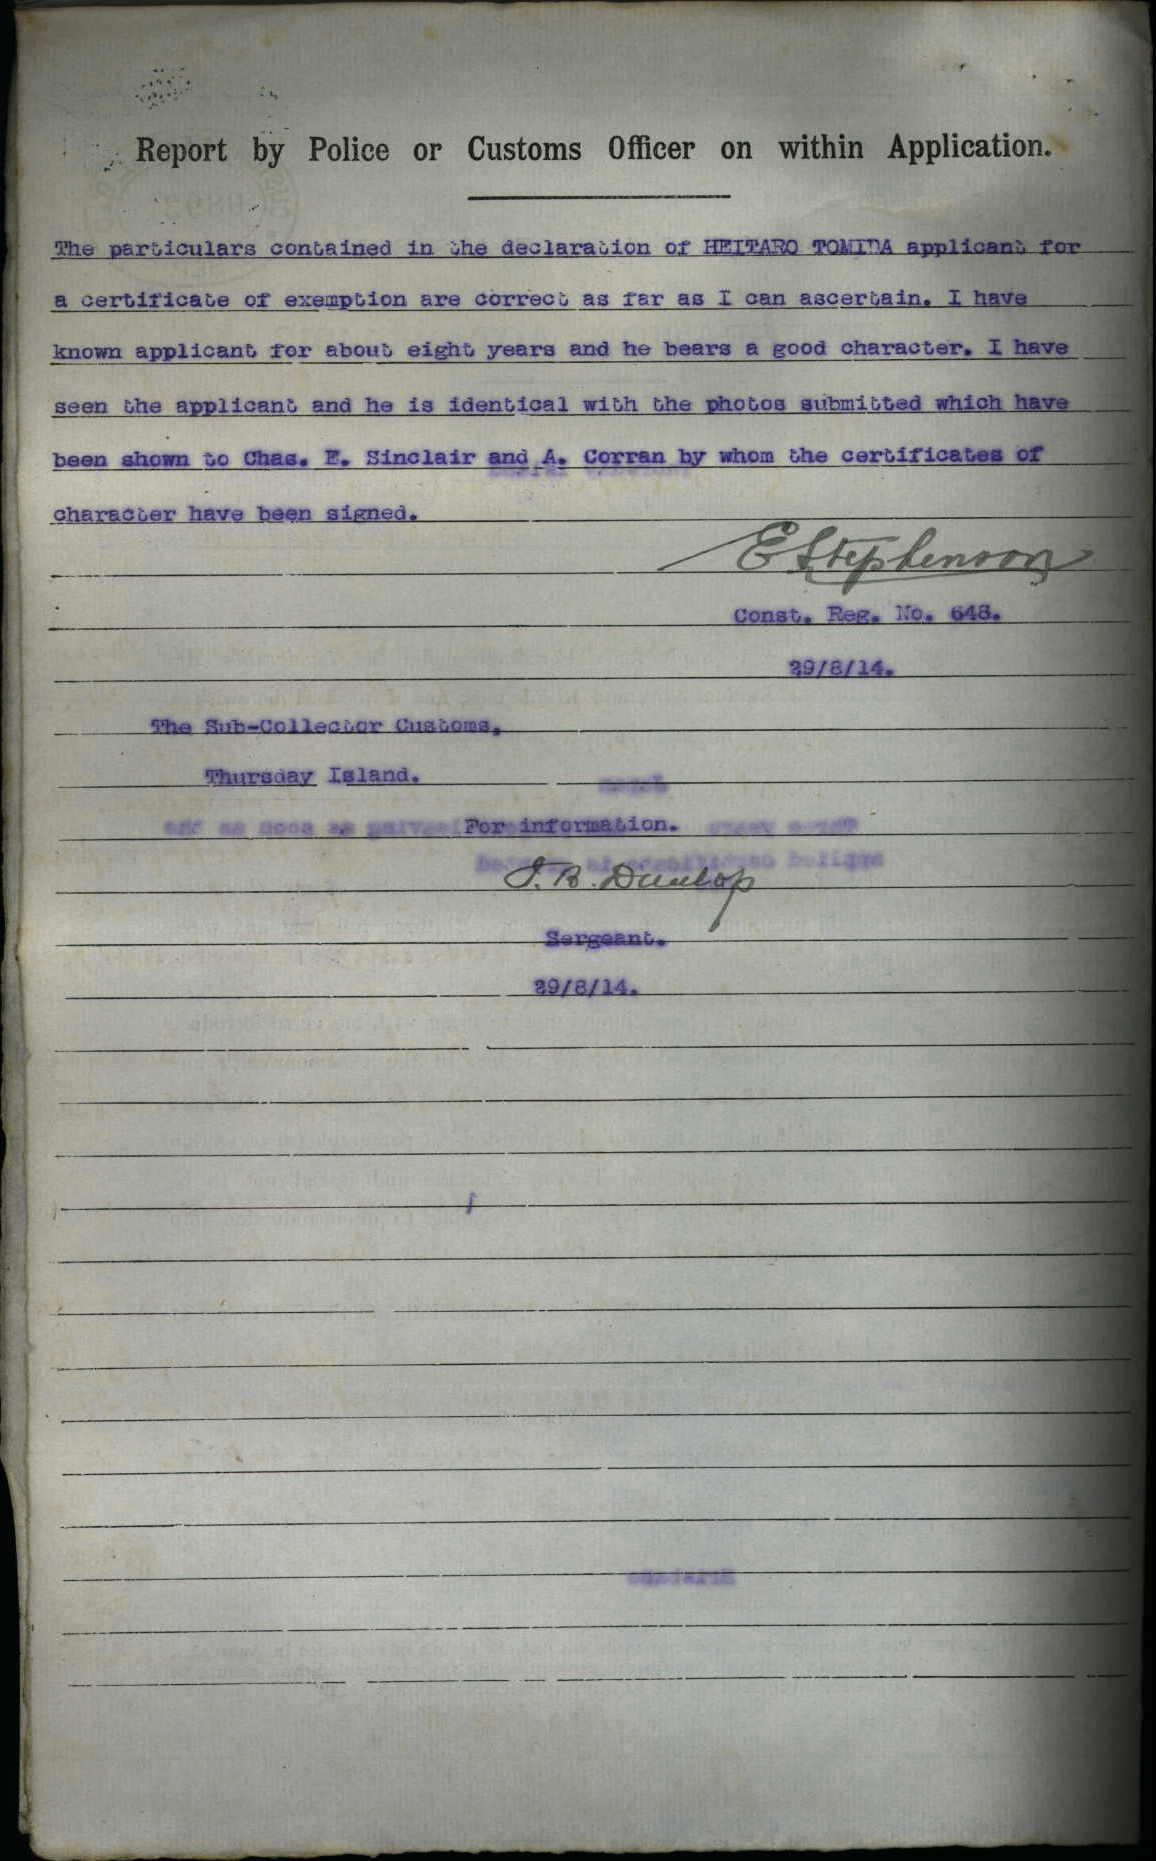 Report by Police or Customs Officer on within Application.
The particulars contained in the declaration of HEITARO TOMIDA applicant for
a certificate of exemption are correct as far as I can ascertain. I have
known applicant for about eight years and he bears a good character. I have
seen the applicant and he is identical with the photos submitted which have
been shown to Chas. E. Sinclair and A. Corran by whom the certificates of
character have been signed.
E Stephenson
Const. Reg. No. 648.
29/8/14.
The Sub-Collector Customs.
Thursday Island.
For information.
J. B. Dunlop
Sergeant.
29/8/14.